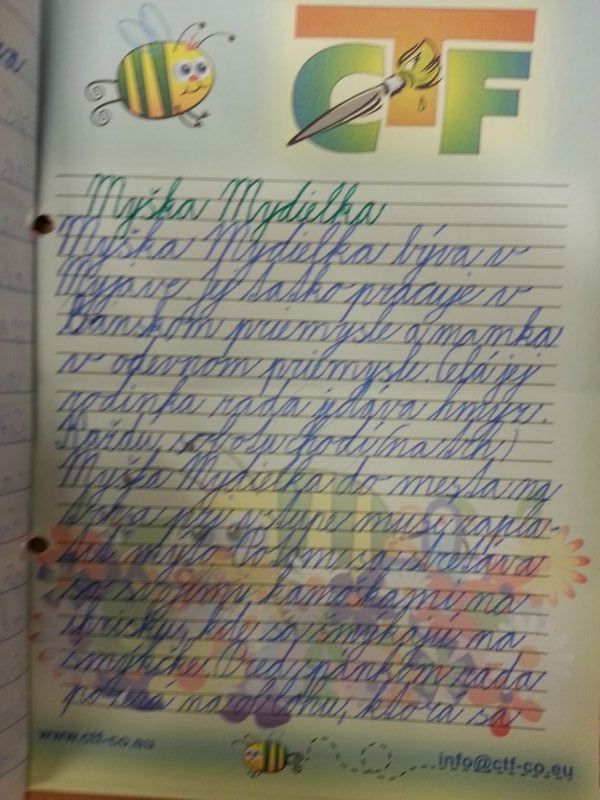 CTF
Myška Mydielka
Myška Mydielka býva v
Myjave. Jej tatko pracuje v
Banskom priemysle a mamka
v odevnom priemysle. Celá jej
rodinka rada jedáva hmyz.
Každú sobotu chodí (na trh)
Myška Mydielka do mesta na
trh a pri vstupe musy zapla-
tiť mýto. Potom sa stretáva
sa svojimi kamoškami na
ihrisku, kde sa šmýkajú na
šmýkľke. Pred spánkom rada
pozerá na oblohu, ktorá sa
www.ctf-co.eu
info@ctf-co.eu